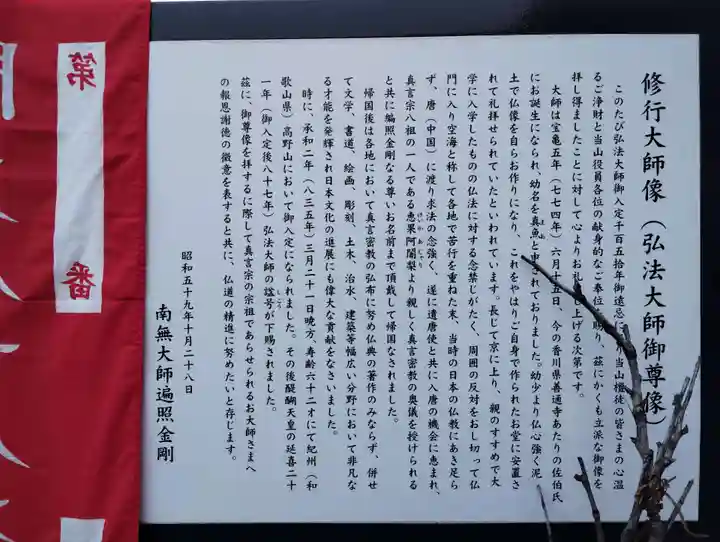 修行大師像（弘法大師御尊像）
このたび弘法大師御入定千百五拾年御遠忌に 当山檀徒の皆さまの心温
るご浄財と当山役員各位の献身的なご奉仕 賜り、茲にかくも立派な御像を
拝し得ましたことに対して心よりお礼 上げる次第です。
大師は宝亀五年（七七四年）六月十五日、今の香川県善通寺あたりの佐伯氏
にお誕生になられ、幼名を真魚と申されておりました。幼少より仏心強く泥
土で仏像を自らお作りになり、これをやはりご自身で作られたお堂に安置さ
れて礼拝せられていたといわれています。長じて京に上り、親のすすめで大
学に入学したものの仏法に対する念禁じがたく、周囲の反対をおし切って仏
門に入り空海と称して各地で苦行を重ねた末、当時の日本の仏教にあき足ら
ず、唐（中国）に渡り求法の念強く、遂に遣唐使と共に入唐の機会に恵まれ、
真言宗八祖の一人である恵果阿闍梨より親しく真言密教の奥儀を授けられる
と共に遍照金剛なる尊いお名前まで頂戴して帰国なされました。
帰国後は各地において真言密教の弘布に努め仏典の著作のみならず、併せ
て文学、書道、絵画、彫刻、土木、治水、建築等幅広い分野において非凡な
る才能を発揮され日本文化の進展にも偉大な貢献をなさいました。
時に、承和二年（八三五年）三月二十一日暁方、寿齢六十二才にて紀州（和
歌山県）高野山において御入定になられました。その後醍醐天皇の延喜二十
一年（御入定後八十七年）弘法大師の諡号が下賜されました。
茲に、御尊像を拝するに際して真言宗の宗祖であらせられるお大師さまへ
の報恩謝徳の微意を表すると共に、仏道の精進に努めたいと存じます。
昭和五十九年十月二十八日
南無大師遍照金剛
第 番